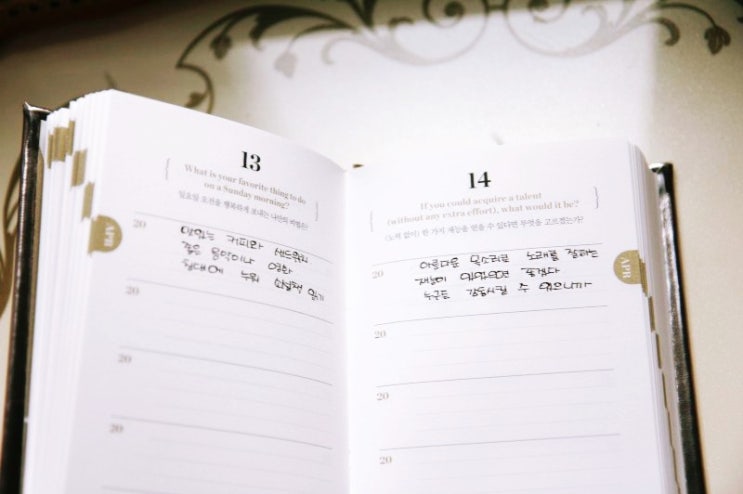 13
What is your favorite thing to do
on a Sunday morning?
일요일 오전을 행복하게 보내는 나만의 비법은?
APR
20
맛있는 커피와 샌드위치
좋은 음악이나 영화
침대에 누워 소설책 읽기
20
20
20
14
If you could acquire a talent
(without any extra effort), what would it be?
(노력 없이) 한 가지 재능을 얻을 수 있다면 무엇을 고르겠는가?
APR
20
아름다운 목소리로 노래를 잘하는
재능이 있었으면 좋겠다
누구든 감동시킬 수 있으니까
20
20
20